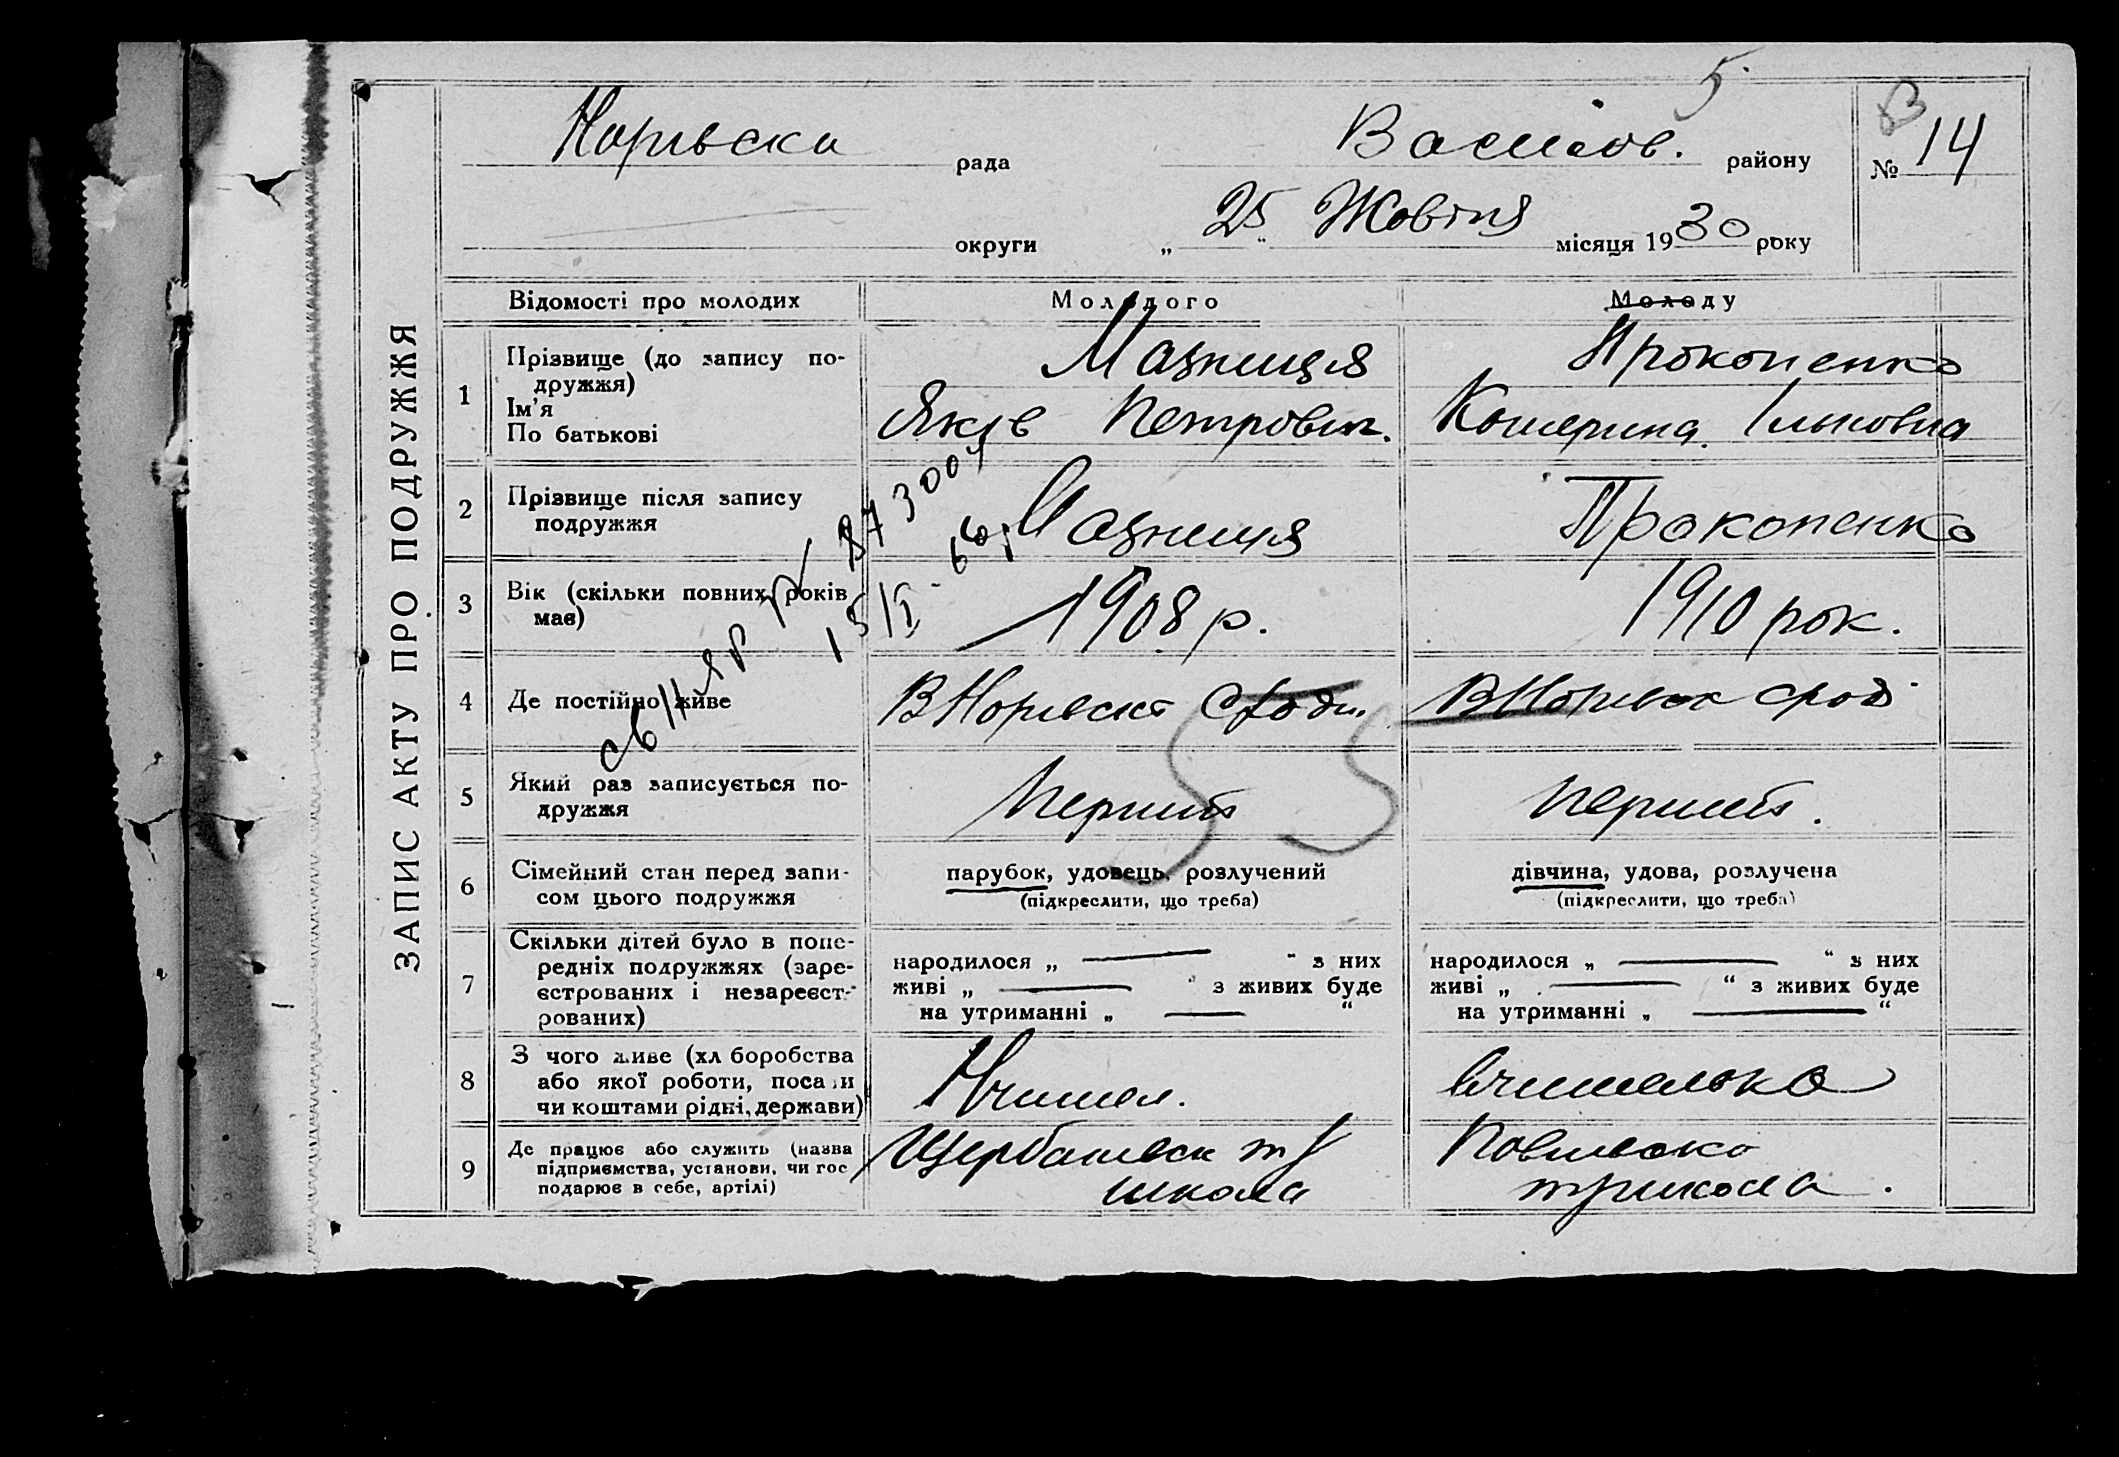 5
В
рада
району
№ 14
округи
„ 25 “ Жовтня місяця 1930 року
ЗАПИС АКТУ ПРО ПОДРУЖЖЯ
Відомості про молодих
Молодого
Молоду
1
Прізвище (до запису по-
дружжя)
Ім'я
По батькові
Мазниця
Яків Петрович.
Прокопенко
Катерина Ільковна
2
Прізвище після запису
подружжя
Мазниця
Прокопенко
3
Вік (скільки повних років
має)
1908 р.
1910 рок.
4
Де постійно живе
5
Який раз записується по-
дружжя
Перший
Перший.
6
Сімейний стан перед запи-
сом цього подружжя
парубок, удовець, розлучений
(підкреслити, що треба)
дівчина, удова, розлучена
(підкреслити, що треба)
7
Скільки дітей було в попе-
редніх подружжях (заре-
єстрованих і незареєст-
рованих)
народилося „ — “ з них
живі „ — “ з живих буде
на утриманні „ — “
народилося „ — “ з них
живі „ — “ з живих буде
на утриманні „ — “
8
З чого живе (хліборобства
або якої роботи, посади
чи коштами рідні, держави)
Учител.
Вчителька
9
Де працює або служить (назва
підприємства, установи, чи гос
подарює в себе, артілі)
школа